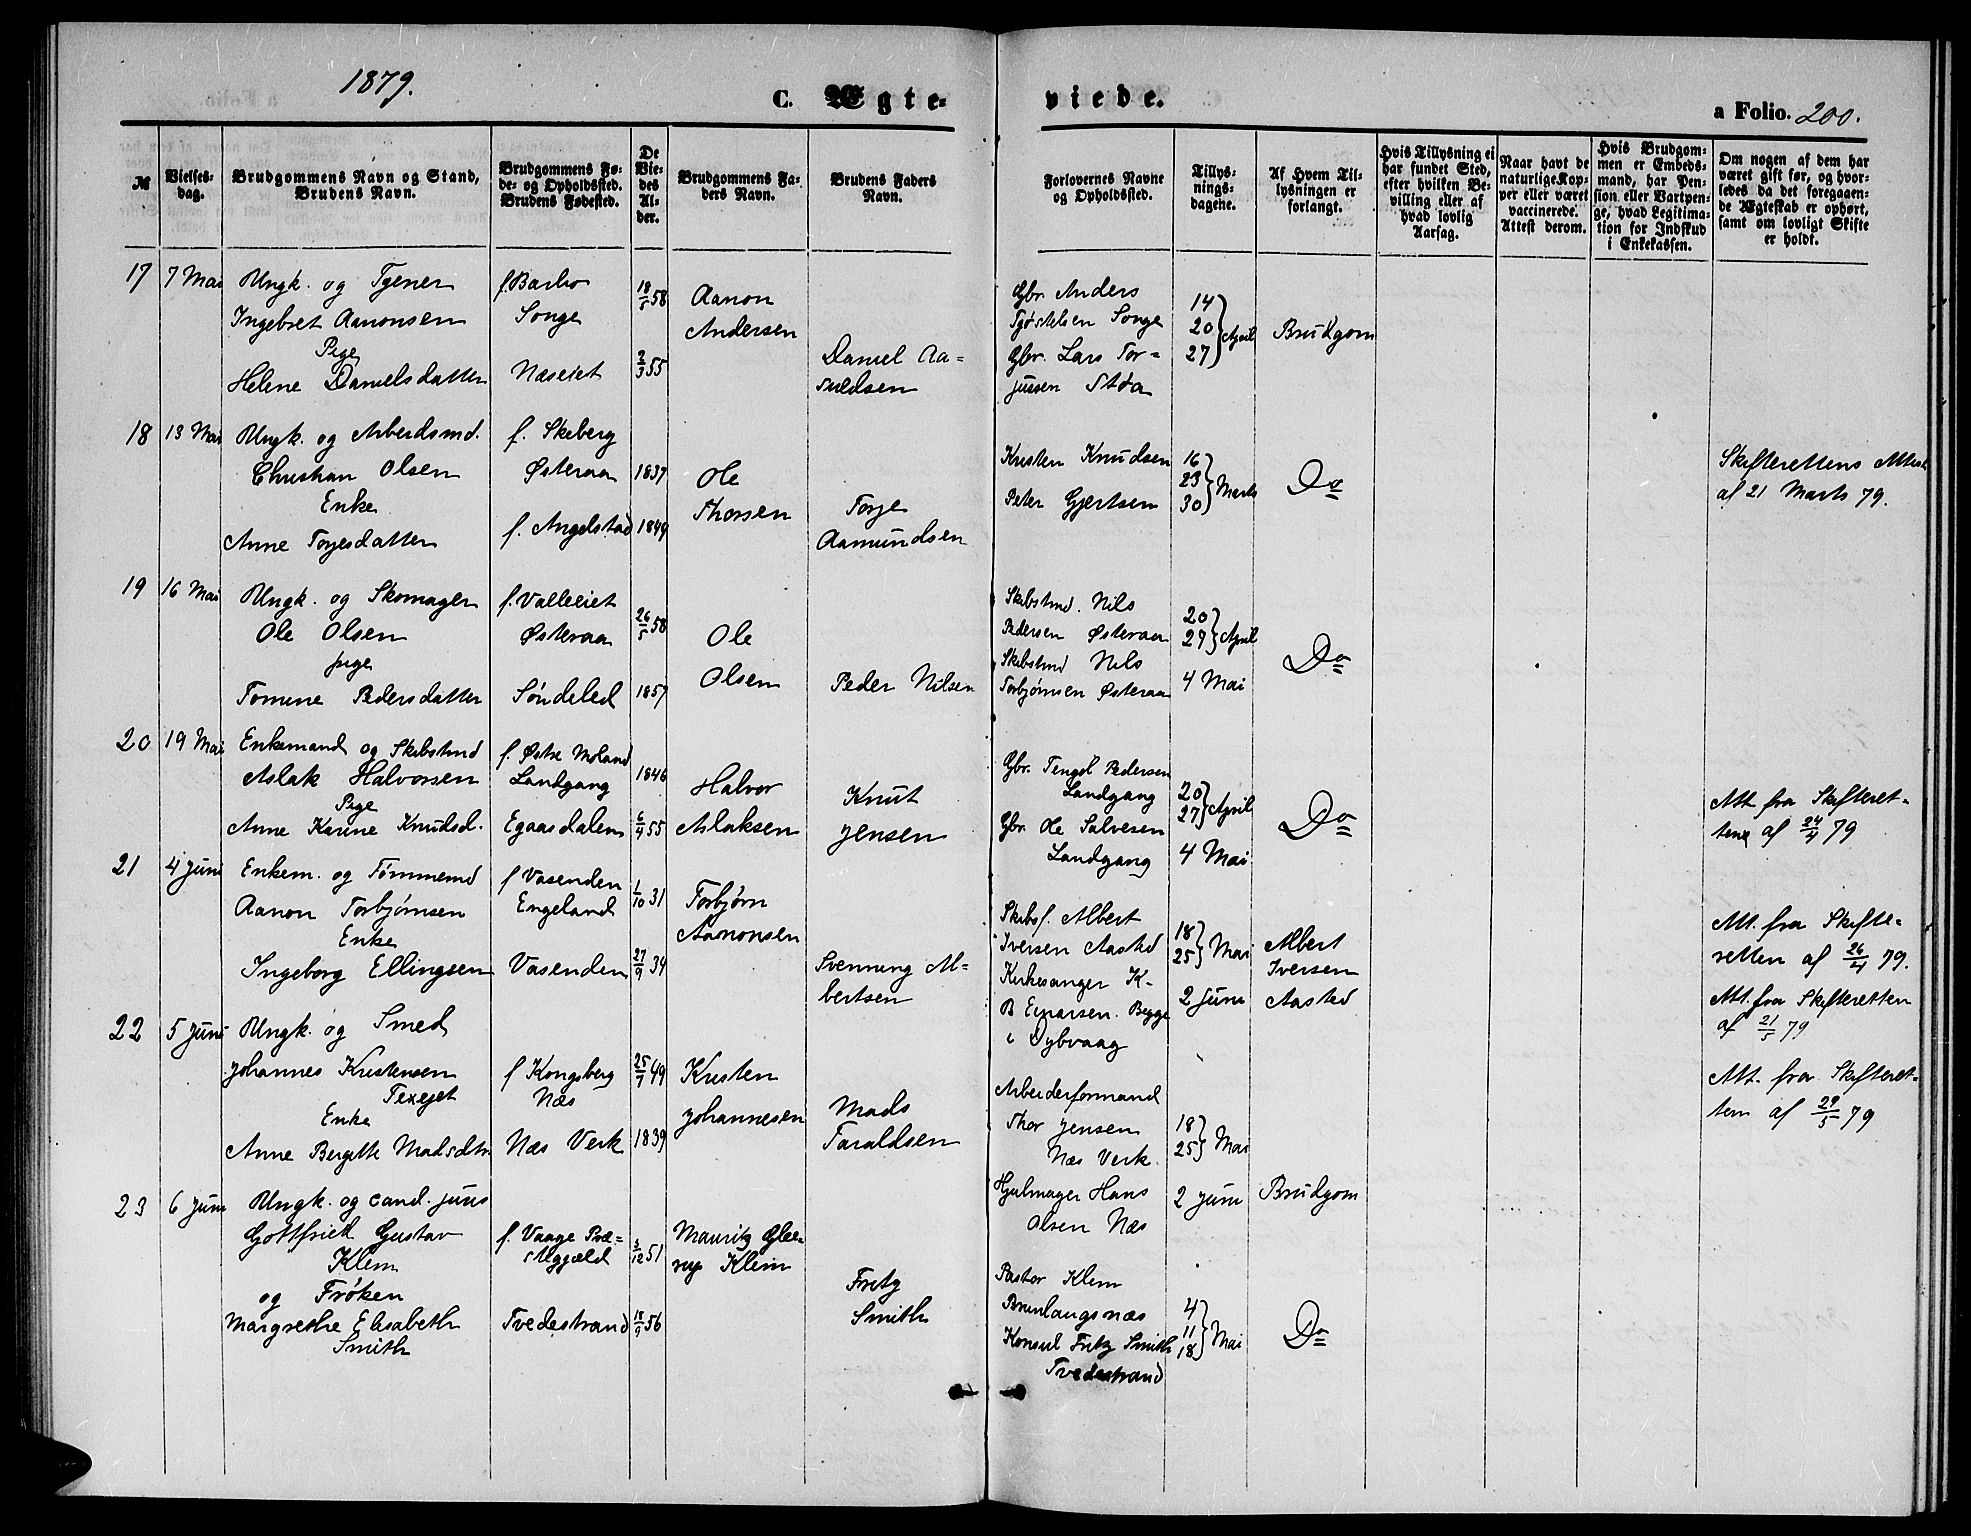 1879.
C. Ægte-
viede.
a Folio. 200.
№
Vielses-
dag.
Brudgommens Navn og Stand,
Brudens Navn.
Brudgommens Fø-
de- og Opholdssted.
Brudens Fødested.
De
Vie-
des
Al-
der.
Brudgommens Fa-
ders Navn.
Brudens Faders
Navn.
Forlovernes Navne
og Opholdssted.
Tillys-
nings-
dagene.
Af Hvem Til-
lysningen er
forlangt.
Hvis Tillysning ei
har fundet Sted,
efter hvilken Be-
villing eller af
hvad lovlig
Aarsag.
Naar havt de
naturlige Kop-
per eller været
vaccinerede.
Attest derom.
Hvis Brudgom-
men er Embeds-
mand, har Pen-
sion eller Vartpen-
ge, hvad Legitima-
tion for Indskud
i Enkekassen.
Om nogen af dem har
været gift før, og hvor-
ledes da det foregaaen-
de Ægteskab er ophørt,
samt om lovligt Skifte
er holdt.
17 7 Mai
Ungk. og Tjener
Ingebret Aanonsen
Pige
Helene Danielsdatter
f. Barbo
Songe
Næseiet
18/5 58
2/3 55
Aanon
Andersen
Daniel Aa-
suldsen
Gbr. Anders
Tjøstelsen Songe
Gbr. Lars Tor-
jussen Støa
14
20
27 } April
Brudgom
18 13 Mai
Ungk. og Arbeidsmd.
Christian Olsen
Enke
Anne Torjesdatter
f. Skeberg
Østeraa
f. Angelstad
1837
1849
Ole
Thorsen
Torje
Aamundsen
Kristen Knudsen
Peter Gjertsen
16
23
30 } Marts
Do
Skifterettens Attest
af 21 Marts 79.
19 16 Mai
Ungk. og Skomager
Ole Olsen
pige
Tomine Pedersdatter
f. Valleeiet
Østeraa
Søndeled
26/5 58
1857
Ole
Olsen
Peder Nilsen
Skibstmd. Nils
Pedersen Østeraa
Skibstmd Nils
Torbjørnsen Østeraa
20
27 } April
4 Mai
Do
20 19 Mai
Enkemand og Skibstmd
Aslak Halvorsen
Pige
Anne Karine Knudsd.
f. Østre Moland
Landgang
Egaasdalen
1846
6/4 55
Halvor
Aslaksen
Knut
Jensen
Gbr. Tengel Pedersen
Landgang
Gbr. Ole Salvesen
Landgang
20
27 } April
4 Mai
Do
Att. fra Skifteret-
tene af 24/4 79
21 4 Juni
Enkem. og Tømmemd
Aanon Torbjørnsen
Enke
Ingeborg Ellingsen
f Vasenden
Engeland
Vasenden
1/10 31
27/9 34
Torbjørn
Aanonsen
Svenning Al-
bertsen
Skibsf. Albert
Iversen Aasted
Kirkesanger K.
B Einarsen. Begge
i Dybvaag
18
25 } Mai
2 Juni
Albert
Iversen
Aasted
Att. fra Skifte-
retten af 26/4 79.
Att. fra Skifteretten
af 21/5 79
22 5 Juni
Ungk. og Smed
Johannes Kristensen
Texejet
Enke
Anne Bergitte Madsdtr.
f Kongsberg
Næs
Næs Verk
25/7 49
1839
Kristen
Johannesen
Mads
Taraldsen
Arbeiderformand
Thor Jensen
Næs Verk.
Hjulmager Hans
Olsen Næs
18
25 } Mai
2 Juni
Brudgom
Att. fra Skifteret-
ten af 29/5 79
23 6 Juni
Ungk. og cand. juris
Gottfriek Gustav
Klem
og Frøken
Margrethe Elisabeth
Smith
f. Vaage Præ-
stegjæld
Tvedestrand
3/12 51
18/9 56
Mauritz Glee-
rup Klem
Fritz
Smith
Pastor Klem
Brunlangsnæs
Konsul Fritz Smith
Tvedestrand
4
11
18 } Mai
Do